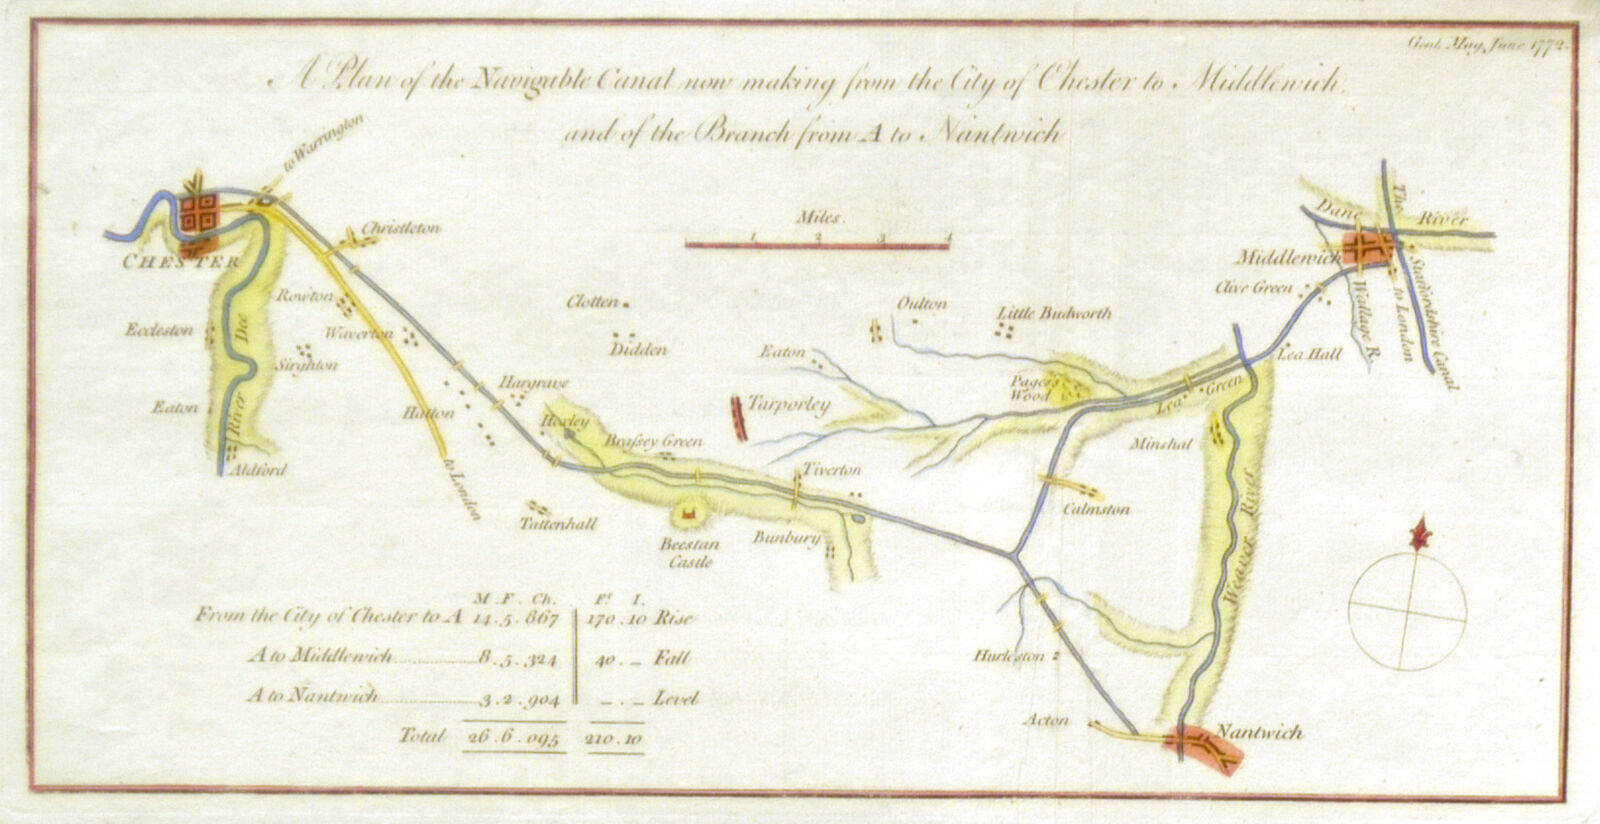 Gent. Mag. June 1772.
A Plan of the Navigable Canal now making from the City of Chester to Middlewich,
and of the Branch from A to Nantwich
to Warrington
Christleton
CHESTER
Miles.
1 2 3 4
The
Dane River
Middlewich
Clive Green
Staffordshire Canal
to London
Wallage R.
Rowton
Eccleston
Dee
Waverton
Sirghton
Clotten
Didden
Oulton
Little Budworth
Eaton
Lea Hall
Hargrave
Pagets Wood
Lea Green
Eaton
River
Hatton
Hoxley
Tarporley
Brassey Green
Minshal
Aldford
to London
Tiverton
Calmston
Tattenhall
Beestan
Castle
Bunbury
Weaver River
M . F . Ch. Ft I.
From the City of Chester to A 14 . 5 . 867 170 . 10 Rise
A to Middlewich 8 . 5 . 324 40 . _ Fall
A to Nantwich 3 . 2 . 904 _ . _ Level
Total 26 . 6 . 095 210 . 10
Hurleston
Acton
Nantwich